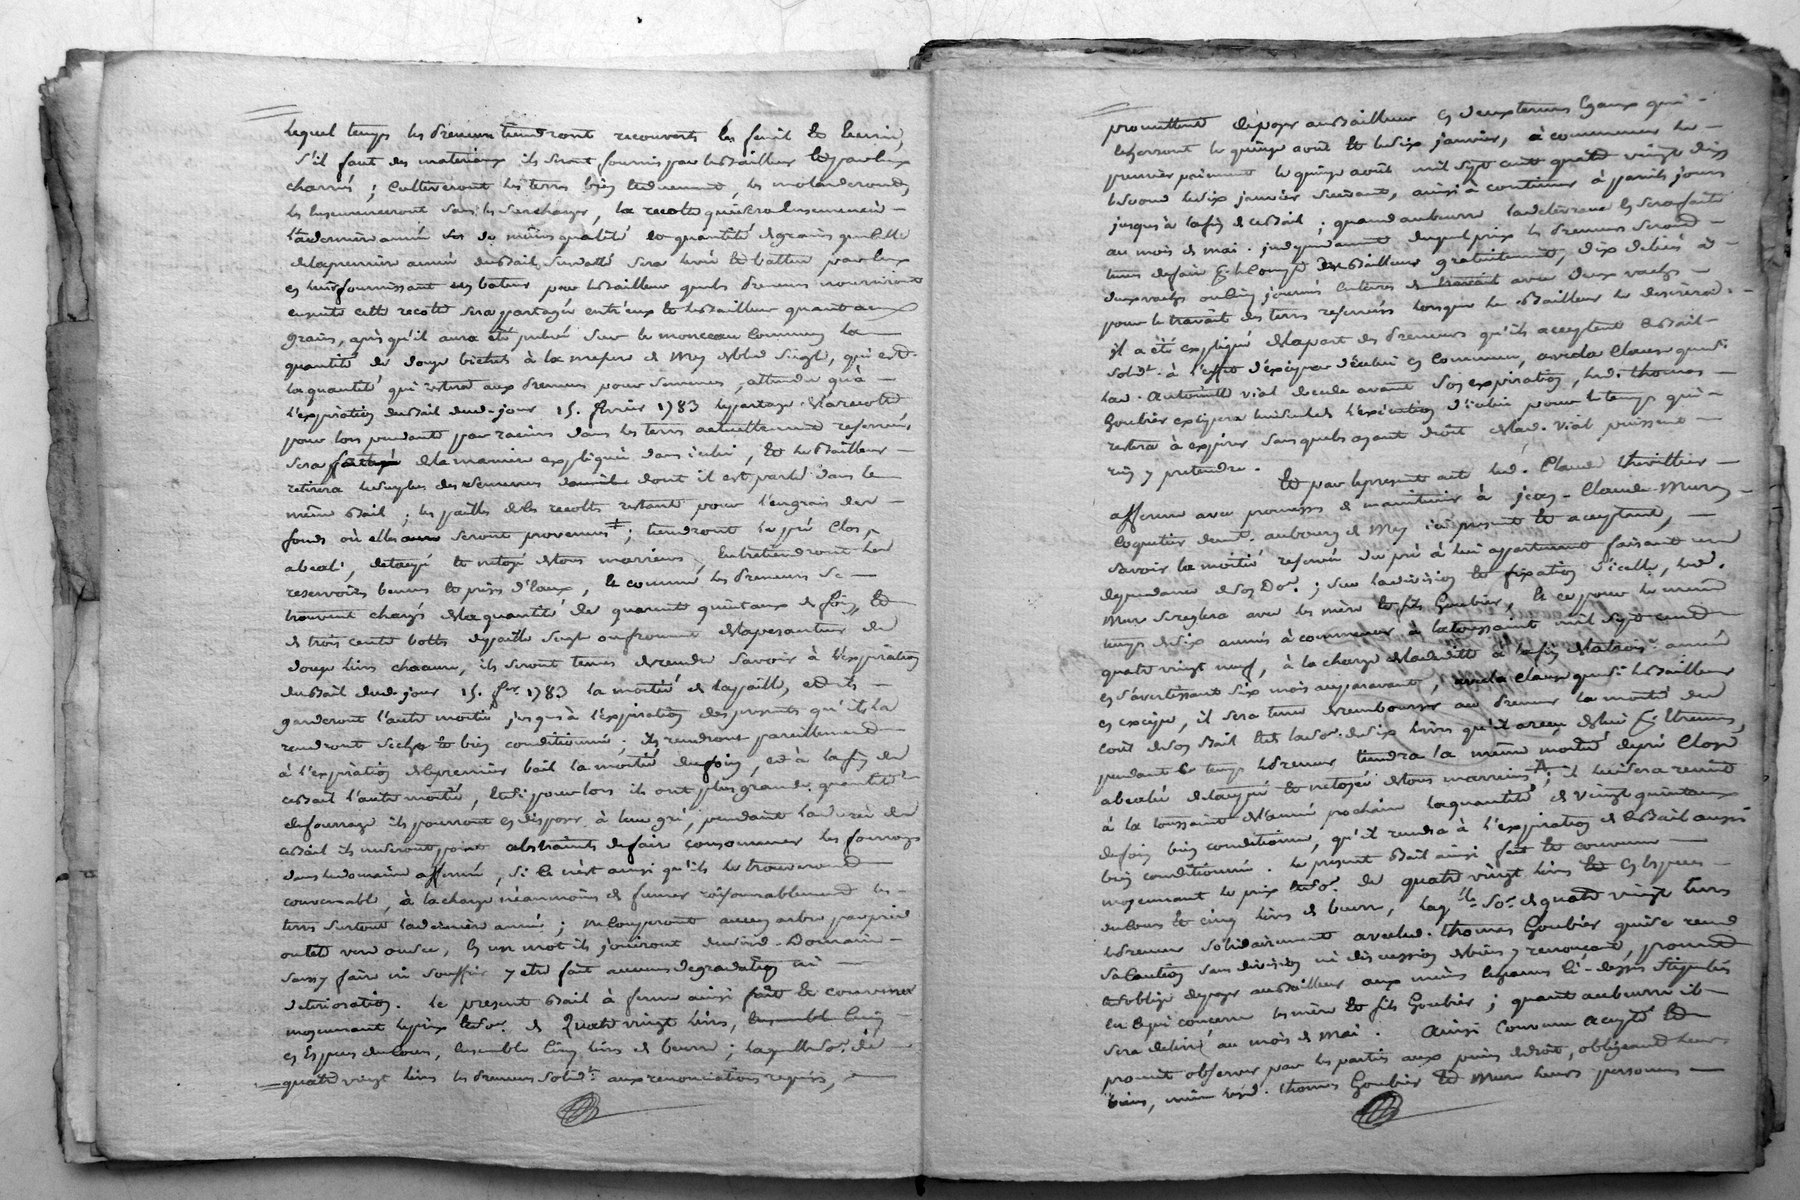 lequel temps les preneurs tiendront recouverts les fenil et ecurie,
s'il faut des materiaux ils seront fournis par le Bailleur et par eux
charriés; cultiveront les terres bien et duement, les
les ensemenceront sans les surcharger, la recolte qui sera ensemencée
la derniere année de même qualité et quantité de grains que celle
de la premiere année du Bail susdatté sera levée et battue par eux
en leur fournissant un bateur par le Bailleur que les preneurs nourriront
ensuite cette recolte sera partagée entr'eux et le Bailleur quant aux
grains, après qu'il aura été prelevé sur le monceau commun la
quantité de douze bichets à la mesure de Mey de bled seigle, qui est
la quantité qui restera aux preneurs pour semences, attendu qu'à
l'expiration du Bail dud. jour 15. fevrier 1783 le partage de la recolte
pour lors pendante par racines dans les terres actuellement reservées,
sera de la maniere expliquée dans icelui, et le Bailleur
retirera le surplus des semences dont il est parlé dans le
même Bail; les pailles de les recoltes restant pour l'engrais des
fonds où elles seront provenues ; tiendront le pré clos,
abealé, detaupé et netoyé de tous marriens, Entretiendront les
reservoirs, bennes et prises d'eaux, et comme les preneurs se
trouvent chargés de la quantité de quarante quintaux de foin, et
de trois cents bottes de paille seigle ou froment de la pesanteur de
douze livres chacune, ils seront tenus de rendre savoir à l'expiration
du Bail dud. jour 15. fer 1783 la moitié de la paille, et ils
garderont l'autre moitié jusqu'à l'expiration des presentes qu'ils la
rendront seche et bien conditionnée; ils rendront pareillement
à l'expiration du premier bail la moitié du foin, et à la fin de
ce Bail l'autre moitié, et si pour lors ils ont plus grande quantité
de fourrage ils pourront en disposer à leur gré, pendant la durée de
ce Bail ils ne seront point abstraints de faire consommer les fourrages
dans le domaine affermé, si ce n'est ainsi qu'ils le trouveront
convenable, à la charge néanmoins de fumer raisonnablement les
terres surtout la derniere année; ne couperont aucun arbre par pied
ou tête verd ou sec, En un mot ils jouiront dud. Domaine
sans y faire ni souffrir y etre fait aucunes degradation ni
deterioration. le present Bail à ferme ainsi fait et convenu
moyennant le prix et so. de Quatre vingt livres, ensemble cinq
en Especes de cours, ensemble cinq livres de beurre; laquelle so. de
quatre vingt livres les preneurs solid.t aux renonciations requises,
promettent de payer au Bailleur en deux termes Egaux qui
le quinze août et le six janvier, à commencer le
premier paiement le quinze août mil sept cent quatre vingt dix
le second le six janvier suivant, ainsi à continuer à pareils jours
jusqu'à la fin de ce Bail; quant au beurre la delivrance en sera faite
au mois de mai. independamment duquel prix les preneurs seront
tenus de faire pr. le compte du Bailleur gratuitement, dix de
deux vaches ou cinq journées entieres de travail avec deux vaches
pour le travail des terres reservées lorsque le Bailleur le desirera.
il a été expliqué de la part des preneurs qu'ils acceptent ce Bail
solid.t à l'effet d'exciper d'icelui en commun, avec la clause que si
lad. Antoinette vial decede avant son expiration, led. thomas
Goubier excipera seul de l'exécution d'icelui pour le temps qui
restera à expirer sans que les ayant droit de lad. vial puissent
rien y pretendre.
Et par le present acte led. Claude thevillier
afferme avec promesse de maintenir à jean-Claude Mure
coquetier demt. au bourg de Mey ici present et acceptant,
savoir la moitié reservée du pré à lui appartenant faisant
dependance de son Do.; sur la division et fixation d'icelle, led.
Mure se reglera avec les mère et fils Goubier, et ce pour le même
temps de six années à commencer à la toussaint mil sept cent
quatre vingt neuf, à la charge de la dedite à la fin de la trois.e année
en s'avertissant six mois auparavant, avec la clause que si le Bailleur
en excipe, il sera tenu de rembourser au preneur la moitié du
cout de son Bail et la so. de six livres qu'il a reçu de lui pr. Etrennes,
pendant ce temps le preneur tiendra la même moitié de pré Close
abealée detaupée et netoyée de tous marriens; il lui sera remis
à la toussaint de l'année prochaine la quantité de vingt quintaux
de foin bien conditionné, qu'il rendra à l'expiration de ce Bail aussi
bien conditionné. le present Bail ainsi fait et convenu
moyennant le prix et so. de quatre vingt livres en Especes
de cours et cinq livres de beurre, laq.lle so. de quatre vingt livres
le preneur solidairement avec led. thomas Goubier qui se rend
sa Caution sans division ni discussion de biens y renonçant, promet
et s'oblige de payer au Bailleur aux mêmes termes ci-dessus stipulés
en ce qui concerne les mère et fils Goubier; quant au beurre il
sera delivré au mois de mai. Ainsi Convenu accepté et
promis observer par les parties aux peines de droit, obligeant leurs
biens, même lesd. thomas Goubier et Mure leurs personnes